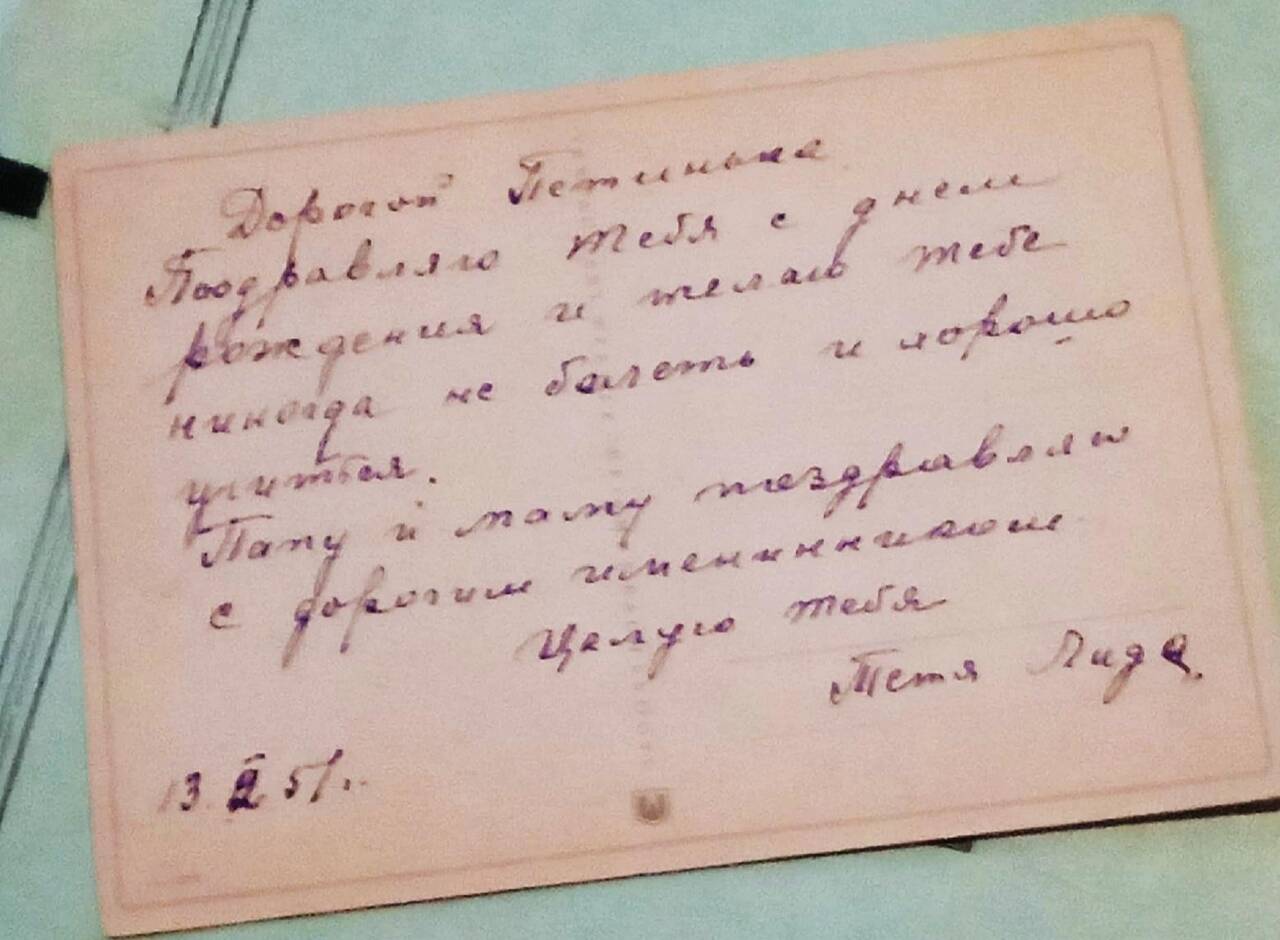 Дорогой Петинька
Поздравляю тебя с днем
рождения и желаю тебе
никогда не болеть и хорошо
учиться.
Папу и маму поздравляю
с дорогим именинником
Целую тебя
Тетя Лида.
13 II 51г.